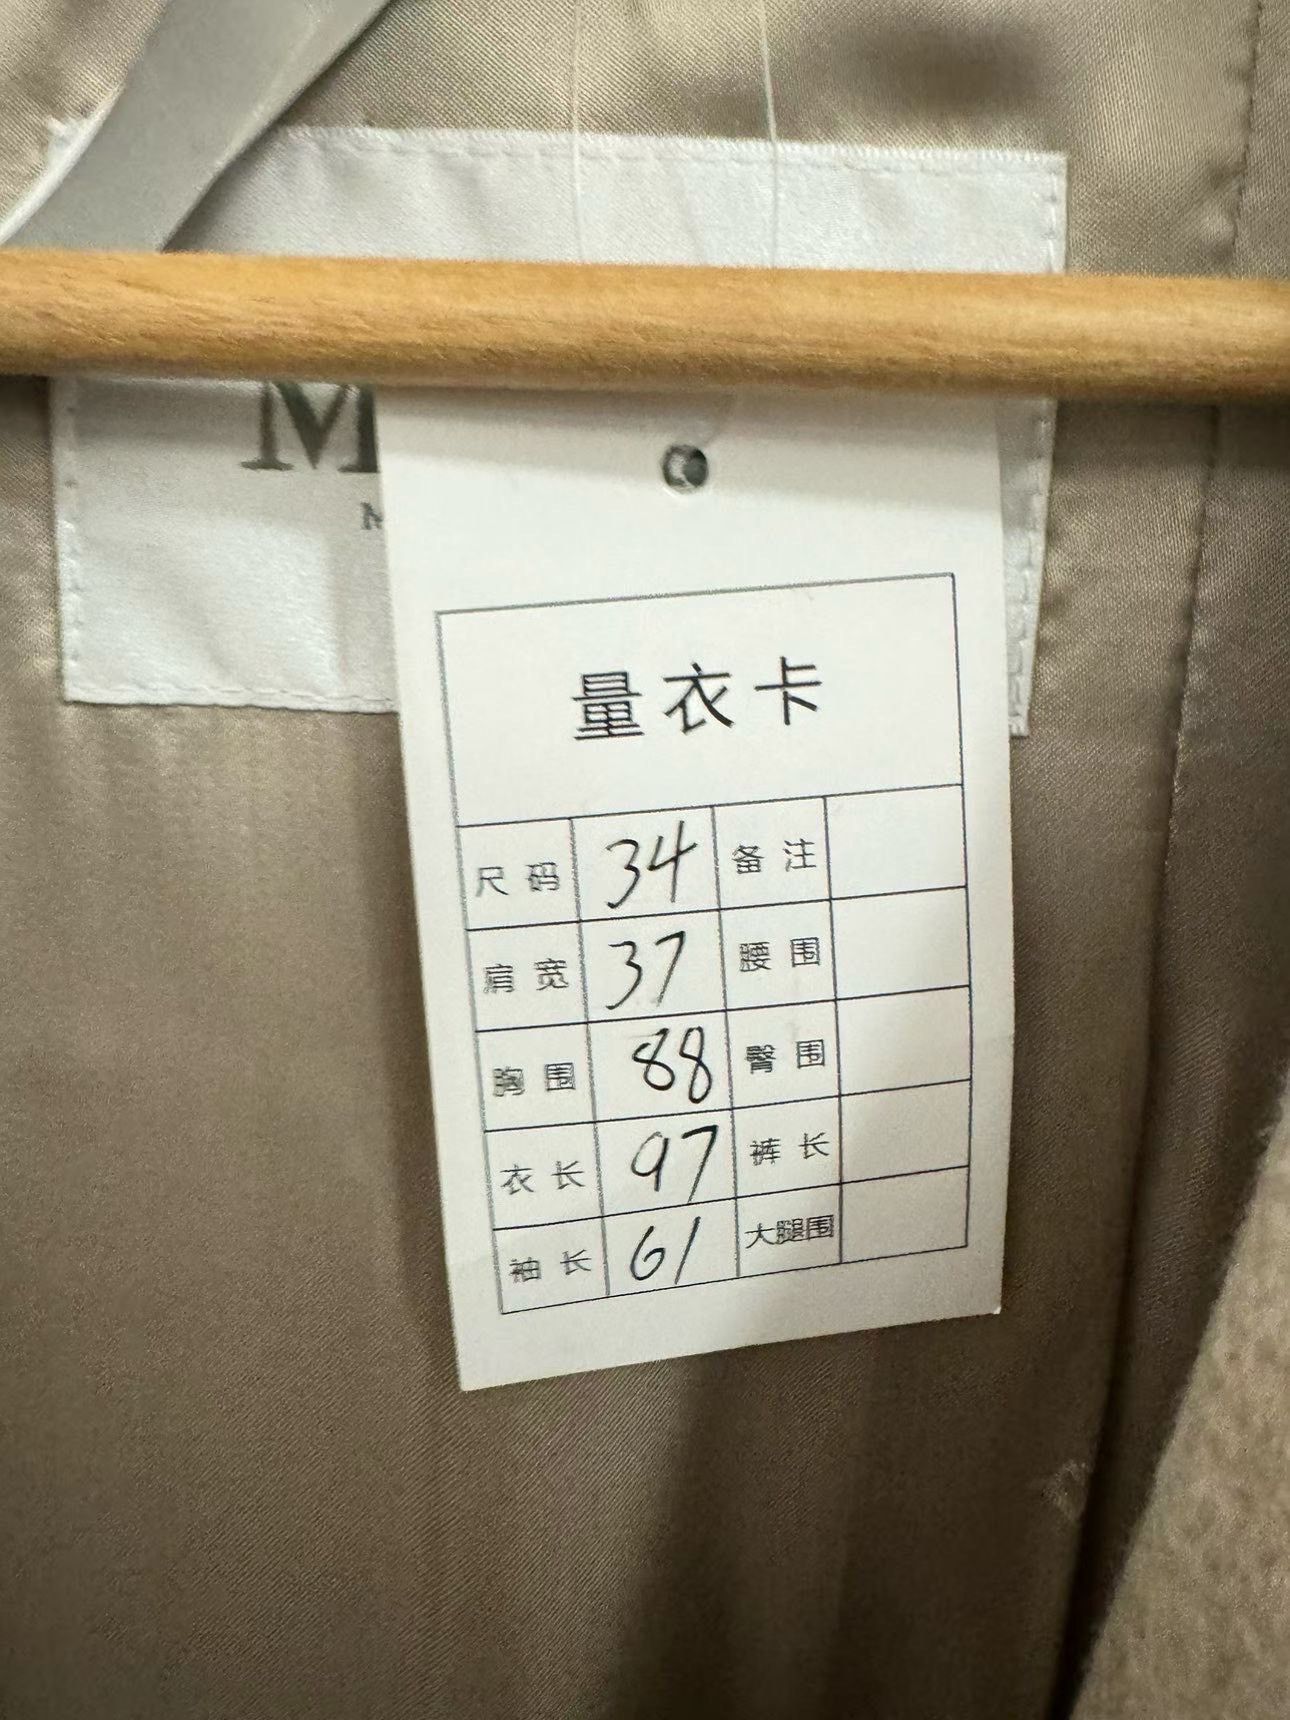 M
M
量衣卡
尺码 34 备注
肩宽 37 腰围
胸围 88 臀围
衣长 97 裤长
袖长 61 大腿围